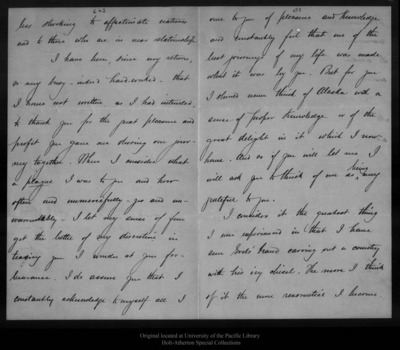 less shocking to affectionate natures
and to those who are in near relationship
I have been, since my return,
so very busy - and hard-worked - that
I have not written as I had intended,
to thank you for the great pleasure and
profit you gave me during our jour-
ney together. When I consider what
a plague I was to you and how
often and unmercifully, yes and un-
warrantably - I let my sense of fun
get the better of my discretion in
teasing you I wonder at your for-
bearance. I do assure you that I
constantly acknowledge to myself all I
owe to you of pleasure and knowledge
and constantly feel that one of the
best journeys of my life was made
what it was by you. But for you
I should never think of Alaska with a
sense of proper knowledge or of the
great delight in it which I now
have. And so if you will let me I
will ask you to think of me as being very
grateful to you.
I consider it the greatest thing
I ever experienced in that I have
seen God's hand carving out a country
with his icy chisel. The more I think
of it the more reasonable I become.
Original located at University of the Pacific Library
Holt-Atherton Special Collections